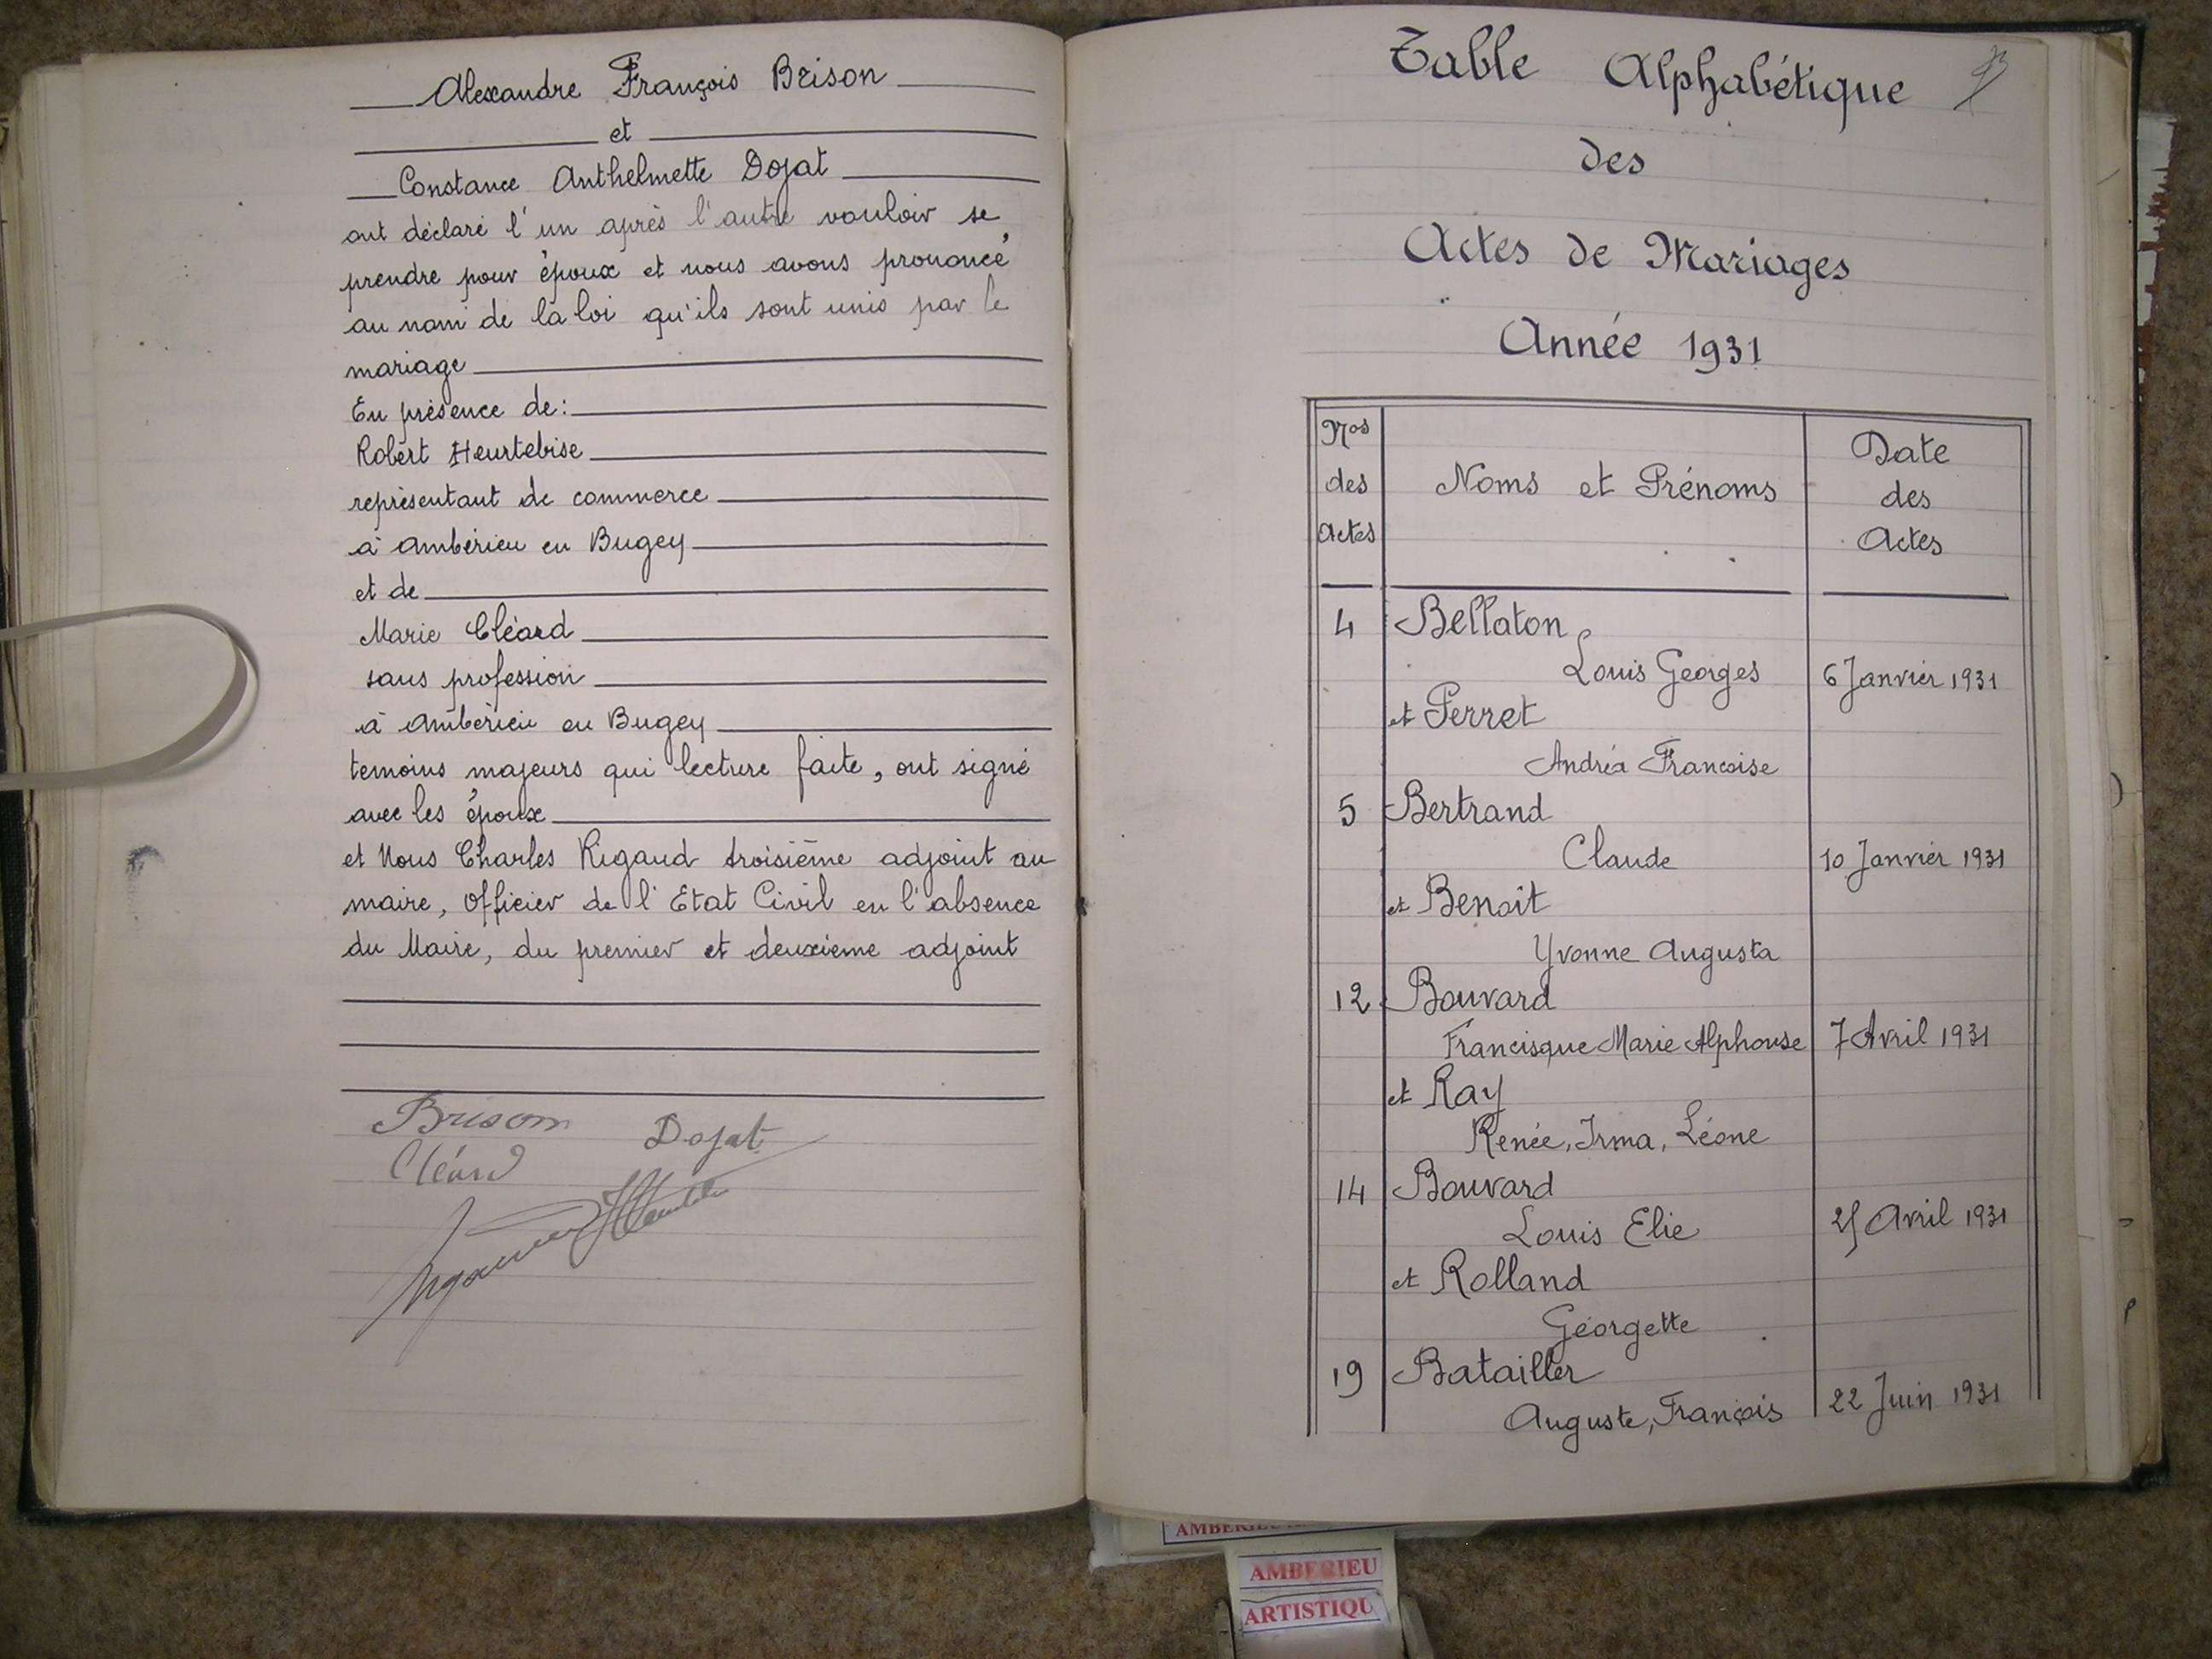 Alexandre François Brison
et
Constance Anthelmette Dojat
ont déclaré l'un après l'autre vouloir se
prendre pour époux et nous avons prononcé
au nom de la loi qu'ils sont unis par le
mariage
En présence de:
Robert Heurtebise
représentant de commerce
à Ambérieu en Bugey
et de
Marie Cléard
sans profession
à Ambérieu en Bugey
temoins majeurs qui lecture faite, ont signé
avec les époux
et Nous Charles Rigaud troisième adjoint au
maire, Officier de l'Etat Civil en l'absence
du Maire, du premier et deuxieme adjoint
Brison Dojat
Cléard
Table Alphabétique
des
Actes de Mariages
Année 1931
Nos des Actes
Noms et Prénoms
Date des Actes
4 Bellaton
Louis Georges 6 Janvier 1931
et Perret
Andréa Francoise
5 Bertrand
Claude 10 Janvier 1931
et Benoit
Yvonne Augusta
12 Bouvard
Francisque Marie Alphonse 7 Avril 1931
et Ray
Renée, Irma, Léone
14 Bouvard
Louis Elie 25 Avril 1931
et Rolland
Georgette
19 Batailler
Auguste, François 22 Juin 1931
AMBERIEU
ARTISTIQU